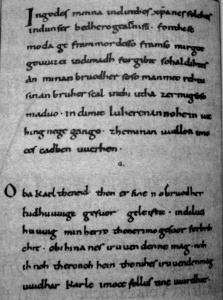 Ingodes minna indinthes xpanes folches
indunser bedhero gealtnissi. fonthese
moda ge frammordesso framso mirgot
geuuizci indimadh furgibit sohaldihtes
an minan bruodher soso manmit rehtu
sinan bruher scal inthi utha zermigsoso
maduo. indimit luheren innohein iut
hing nege gango. theminan uuillon imo
ces cadhen uuerhen.
Oba Karl theneid then er sine no bruodher
ludhuuuige gesuor geleistit. indilud
huuuig min herro thenerimo gesuor forbrih
chit. obi hina nes iruuenden nemag. noh
ih noh theronoh hein thenihes iruuendenmag
uuidhar Karle imoce follus tine uuirdhit